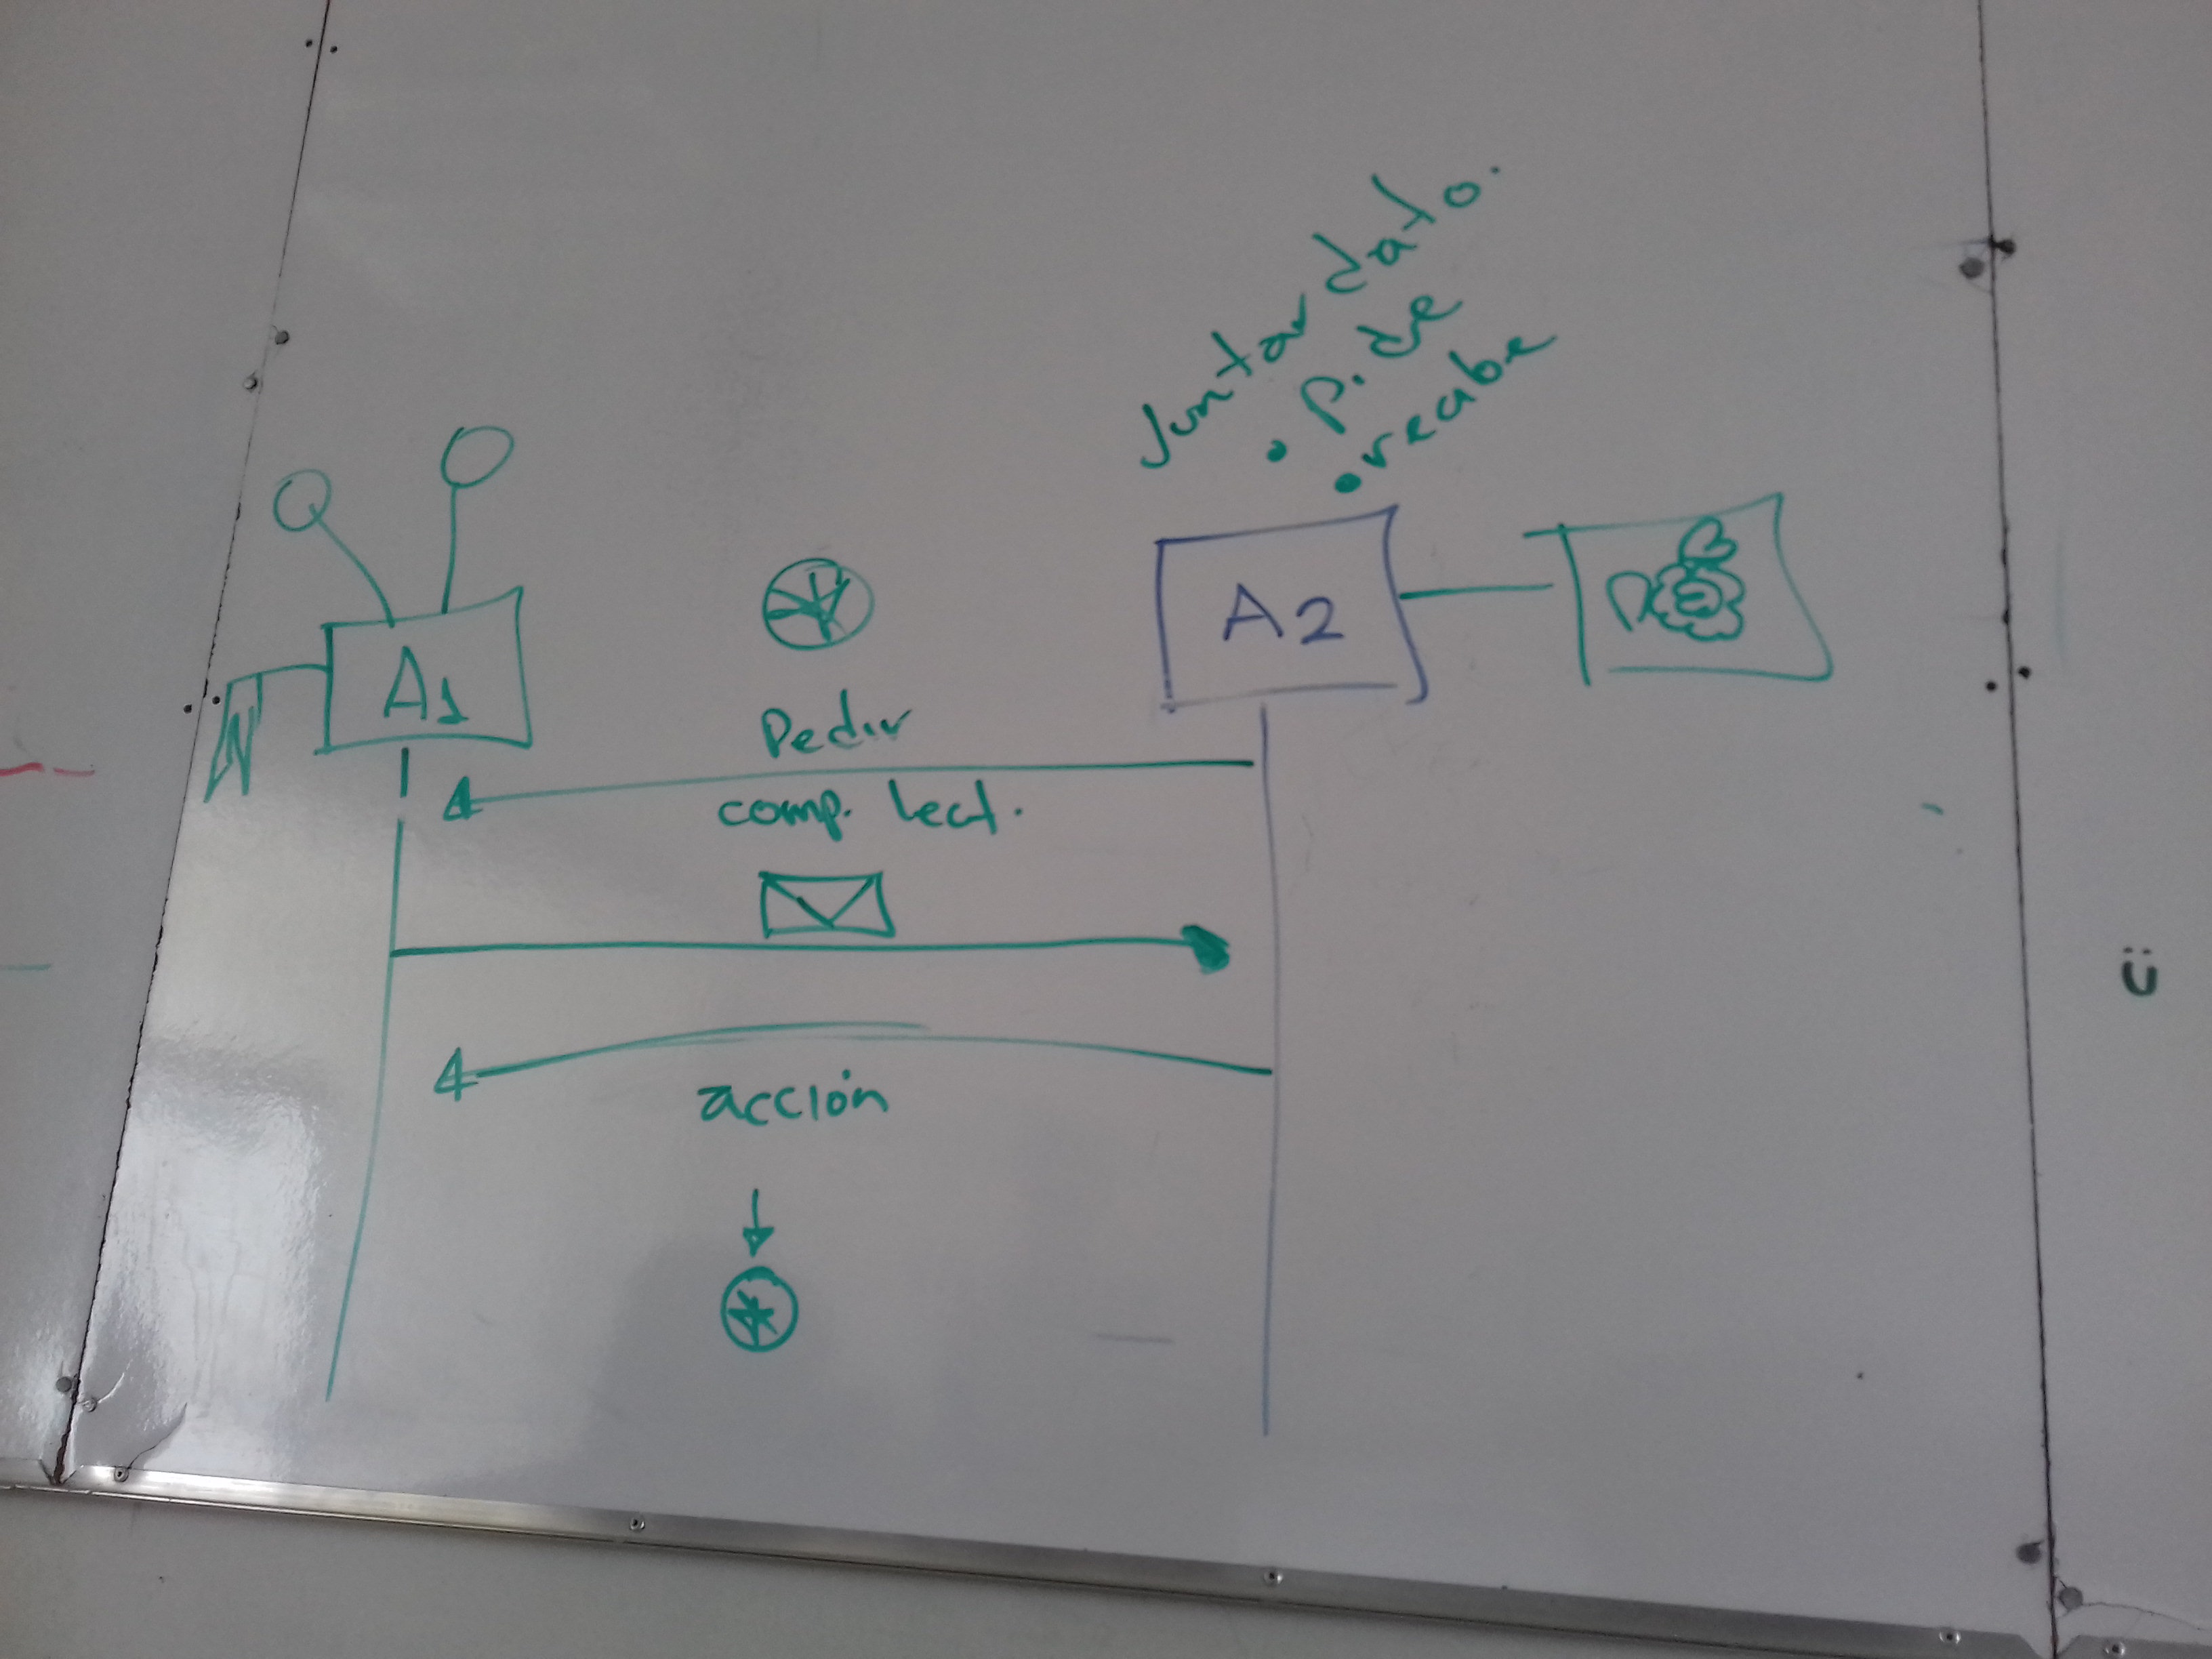 Juntar dato.
• Pide
• reabe
A1
A2
Pedir
comp. lect.
acción